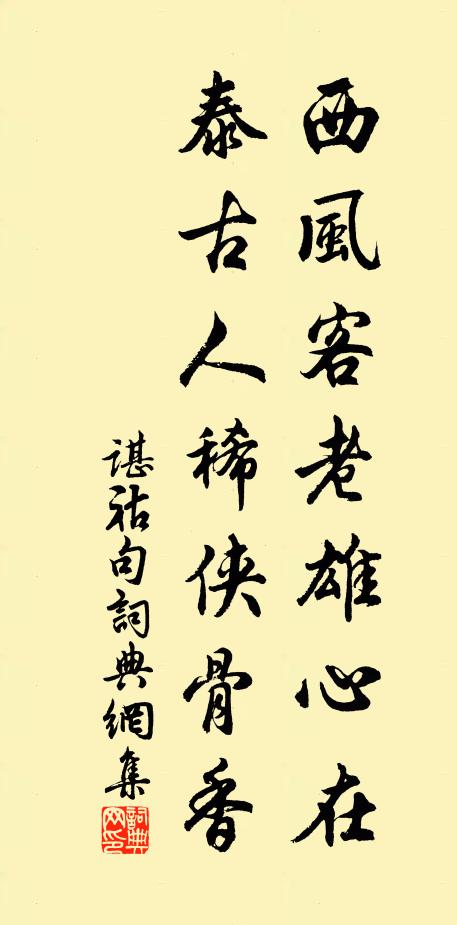 西風客老雄心在
泰古人稀俠骨香
諶祜句詞典網集
詞典網印